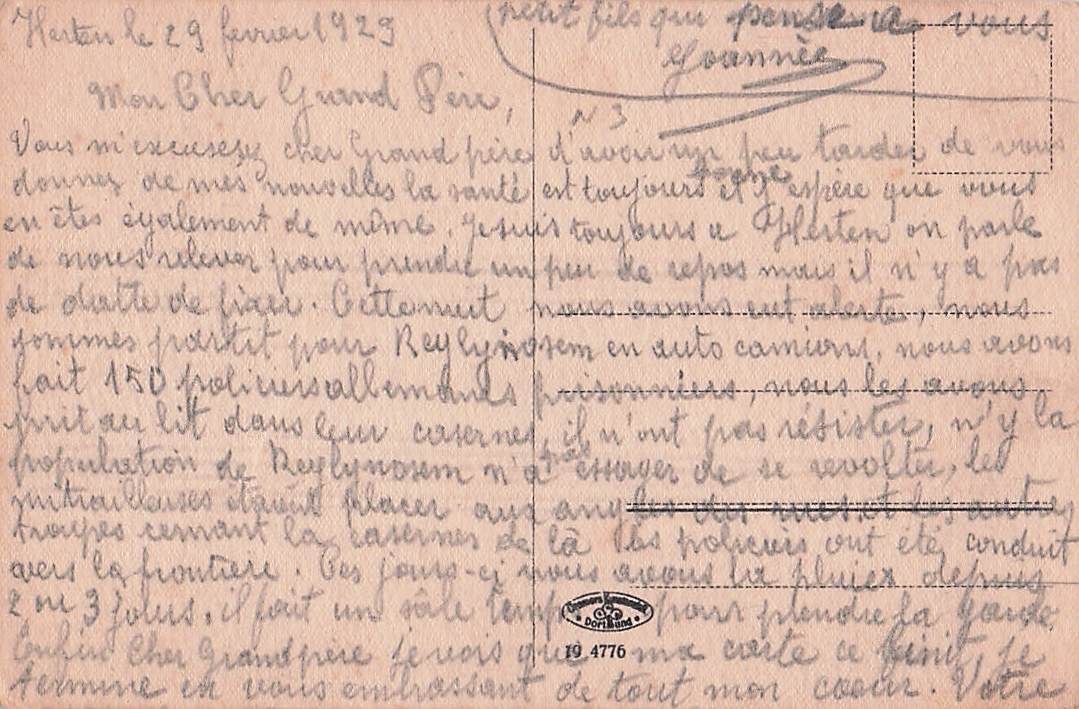 Herten le 29 fevrier 1923
Mon Cher Grand Père,
N 3
Vous m'excuserez cher Grand père d'avoir un peu tarder de vous
donnez de mes nouvelles la santé est toujours bonne et j'espère que vous
en êtes également de même. Je suis toujours a Herten on parle
de nous relever pour prendre un peu de repos mais il n'y a pas
de datte de fixer. Cette nuit nous avons eut alerte, nous
sommes partit pour Reglynosem en auto camions, nous avons
fait 150 policiers allemands prisonniers, nous les avons
prit au lit dans leur casernes, il n'ont pas résister, n'y la
population de Reglynosem n'a pas essayer de se revolter, les
mitrailleuses étaient placer aux angles des rues et les autres
troupes cernant la casernes de là les policiers ont été conduit
vers la frontière. Ces jours-ci nous avons la pluiex depuis
2 ou 3 jours, il fait un sâle temps pour prendre la garde
Enfin Cher Grand père je vois que ma carte ce finit, je
termine en vous embrassant de tout mon coeur. Votre
petit fils qui pense a vous
Joannès
Dortmund
19 4776